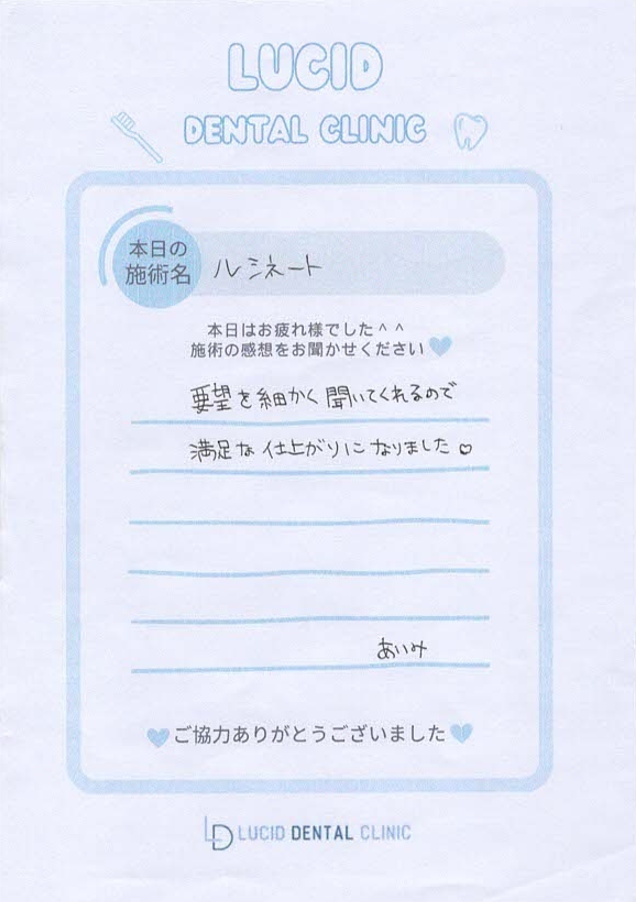 LUCID
DENTAL CLINIC
本日の
施術名
ルシネート
本日はお疲れ様でした^ ^
施術の感想をお聞かせください
要望を細かく聞いてくれるので
満足な仕上がりになりました♡
あいみ
ご協力ありがとうございました
LD LUCID DENTAL CLINIC